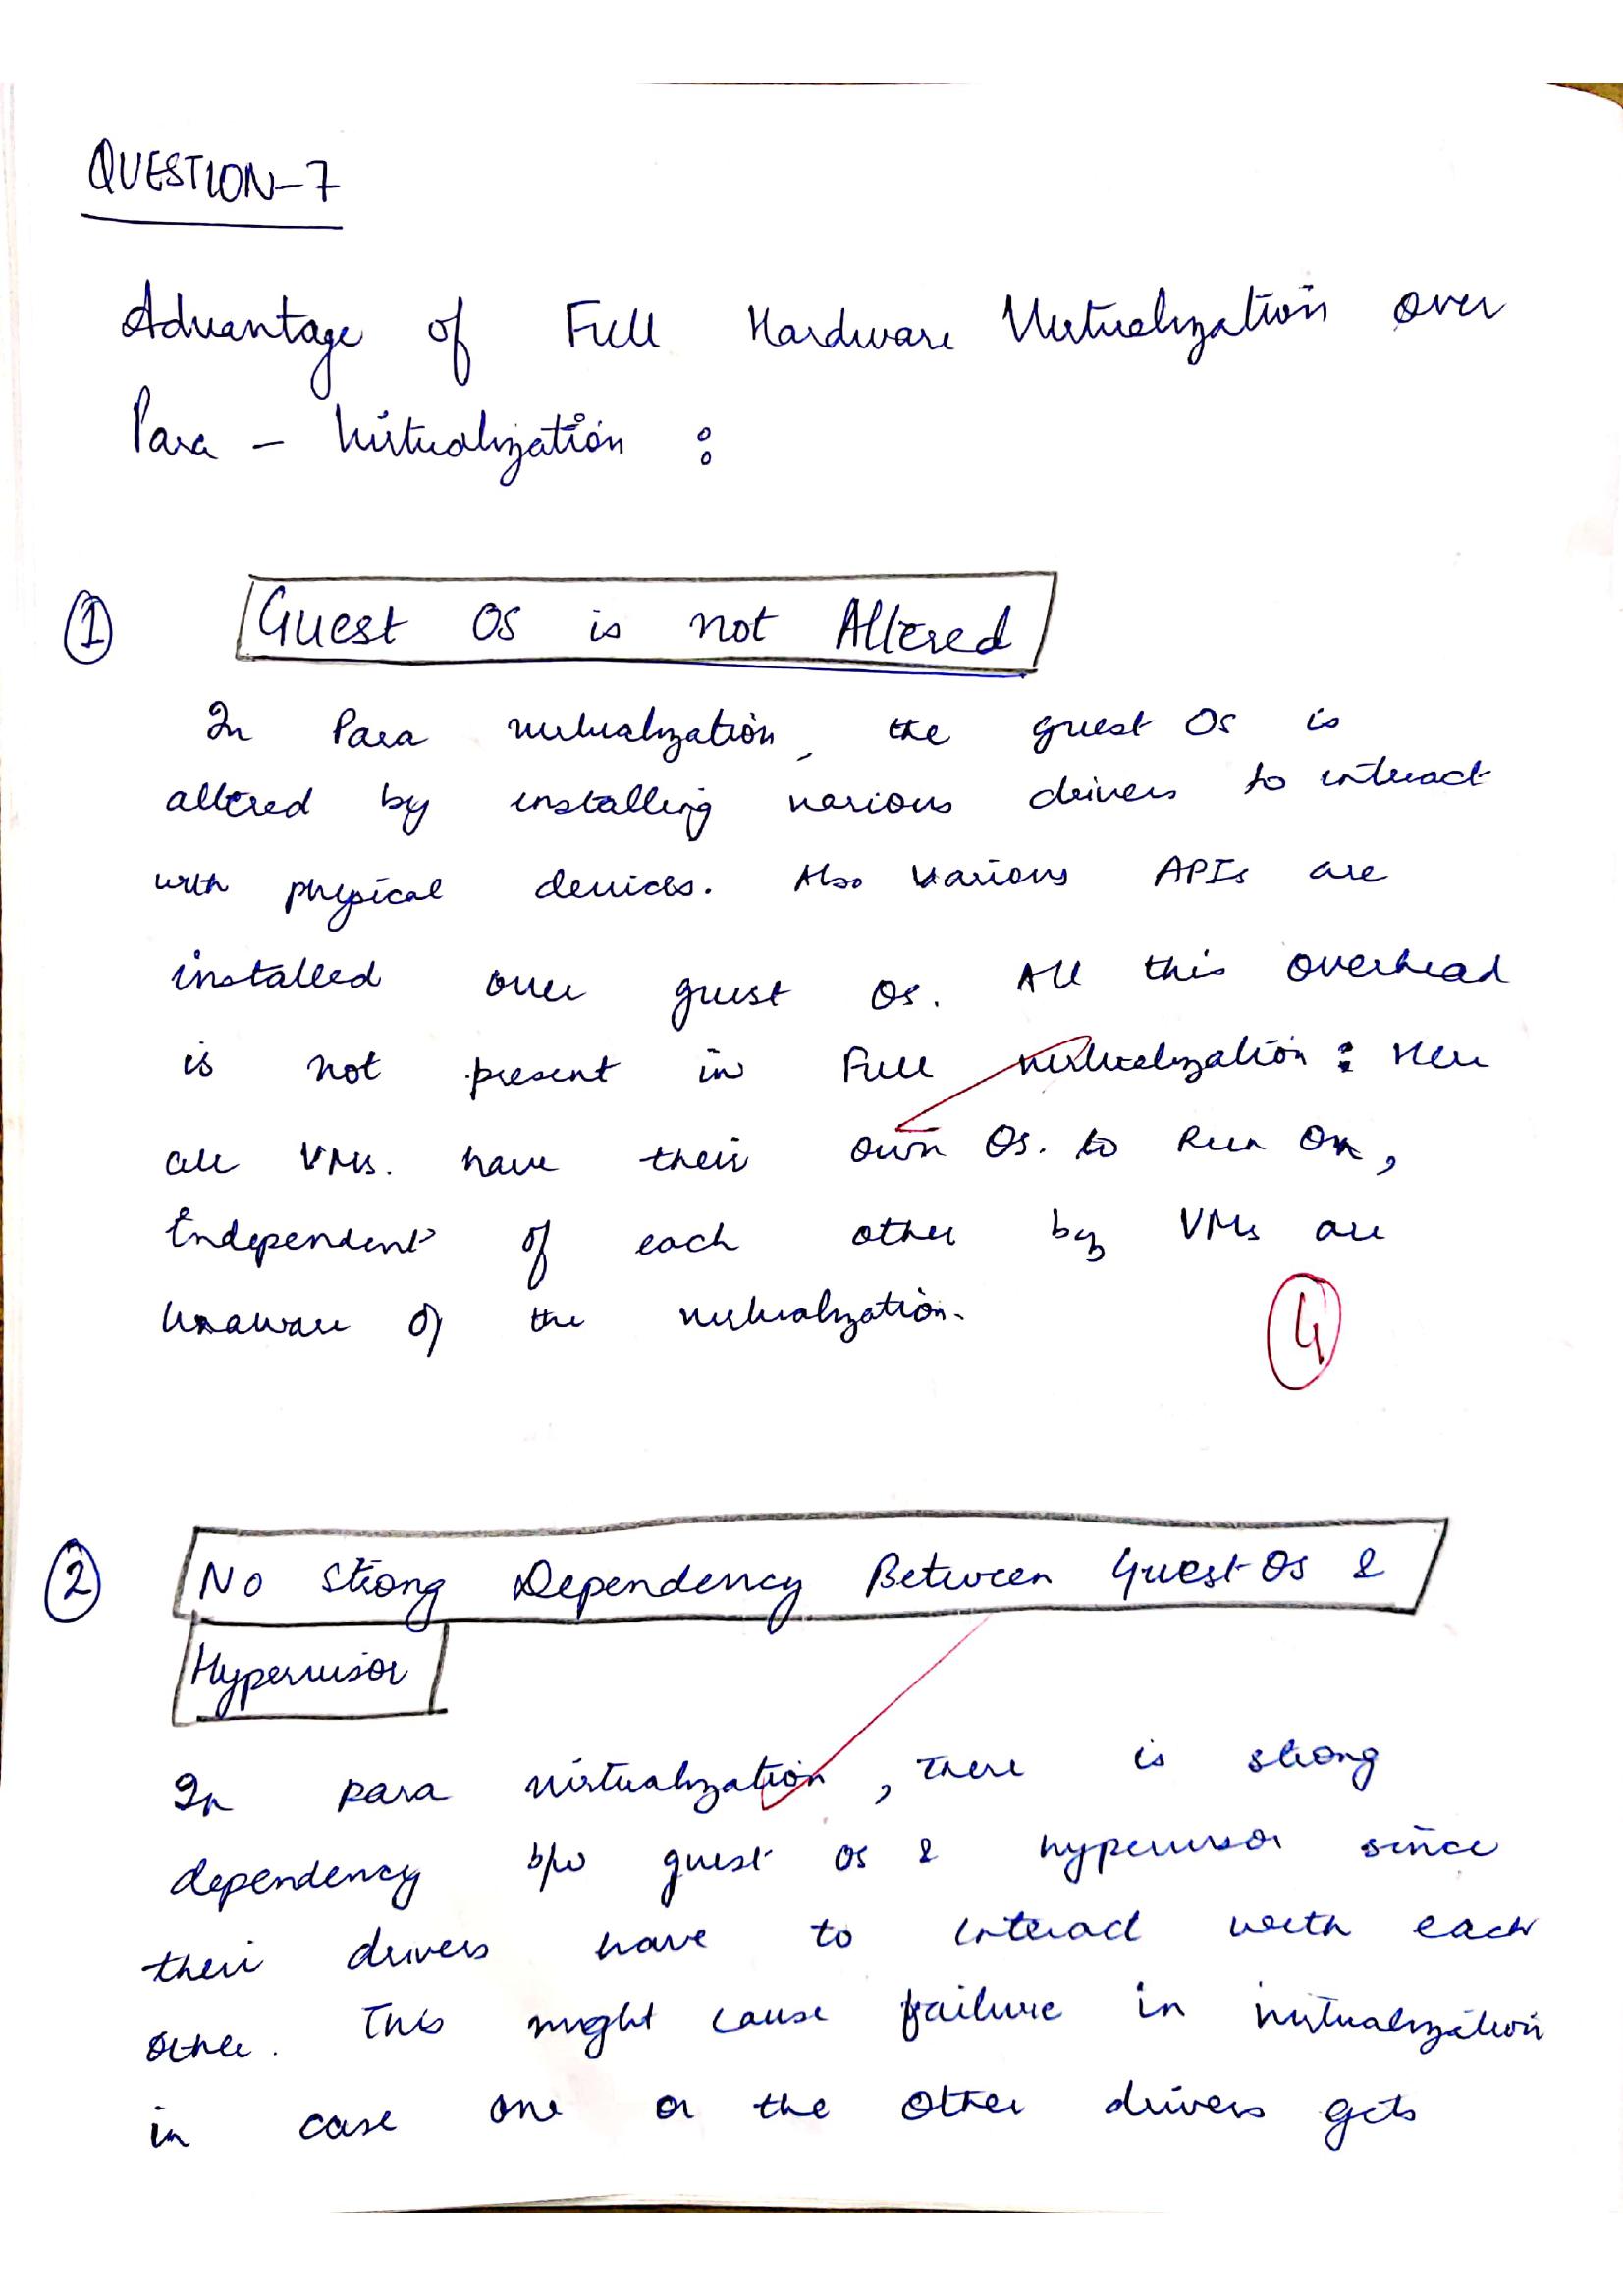 QUESTION-7
Advantage of Full Hardware Virtualization over
Para - Virtualization :
1 Guest OS is not Altered
In Para virtualization, the guest OS is
altered by installing various drivers to interact
with physical devices. Also various APIs are
installed over guest OS. All this overhead
is not present in Full virtualization: Here
all VMs. have their own OS. to Run On,
Independent of each other by VMs are
Unaware of the virtualization.
4
2 No Strong Dependency Between Guest OS &
Hypervisor
In para virtualization, There is strong
dependency b/w guest os & hypervisor since
their drivers have to interact with each
other. This might cause failure in virtualization
in case one or the other drivers gets